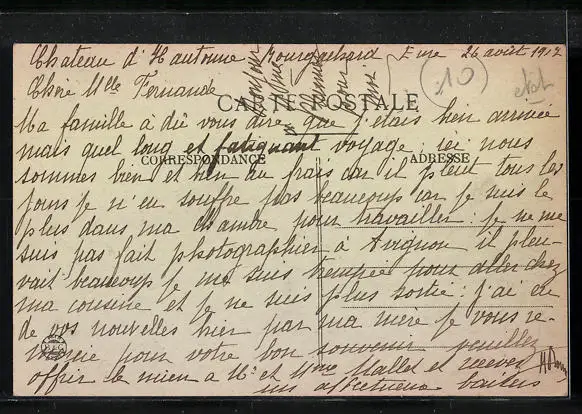 Chateau d'Hautonne Bourgachard Eure 26 août 1912
Chère Mlle Fernande
(10)
CARTE POSTALE
CORRESPONDANCE
ADRESSE
Ma famille a dû vous dire que j'etais bien arrivée
mais quel long et fatiguant voyage, ici nous
sommes bien et bien au frais car il pleut tous les
jours je n'en souffre pas beaucoup car je suis le
plus dans ma chambre pour travailler: je ne me
suis pas fait photographier à Avignon il pleu-
vait beaucoup je me suis trempée pour aller chez
ma cousine et je ne suis plus sortie: j'ai eu
de vos nouvelles hier par ma mère je vous re-
mercie pour votre bon souvenir veuillez
offrir le mien a Mr et Mme Mallet et recevez
mes affectueux baisers